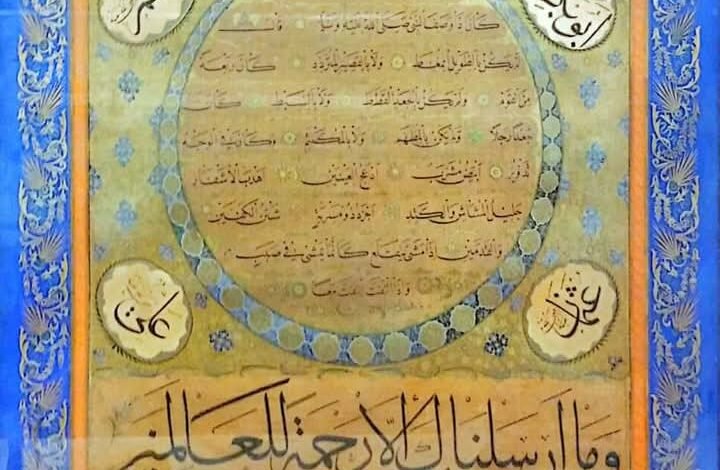 ابو بكر
عمر
كان اذا وصف النبي صلى الله عليه وسلم قال
لم يكن بالطويل الممغط ولا بالقصير المتردد كان ربعة
من القوم ولم يكن بالجعد القطط ولا بالسبط كان
جعدا رجلا ولم يكن بالمطهم ولا بالمكلثم وكان في الوجه
تدوير ابيض مشرب ادعج العينين اهدب الاشفار
جليل المشاش والكتد اجرد ذو مسربة شثن الكفين
والقدمين اذا مشى يتقلع كانما يمشي في صبب
واذا التفت التفت معا
عثمان
علي
وما ارسلناك الا رحمة للعالمين